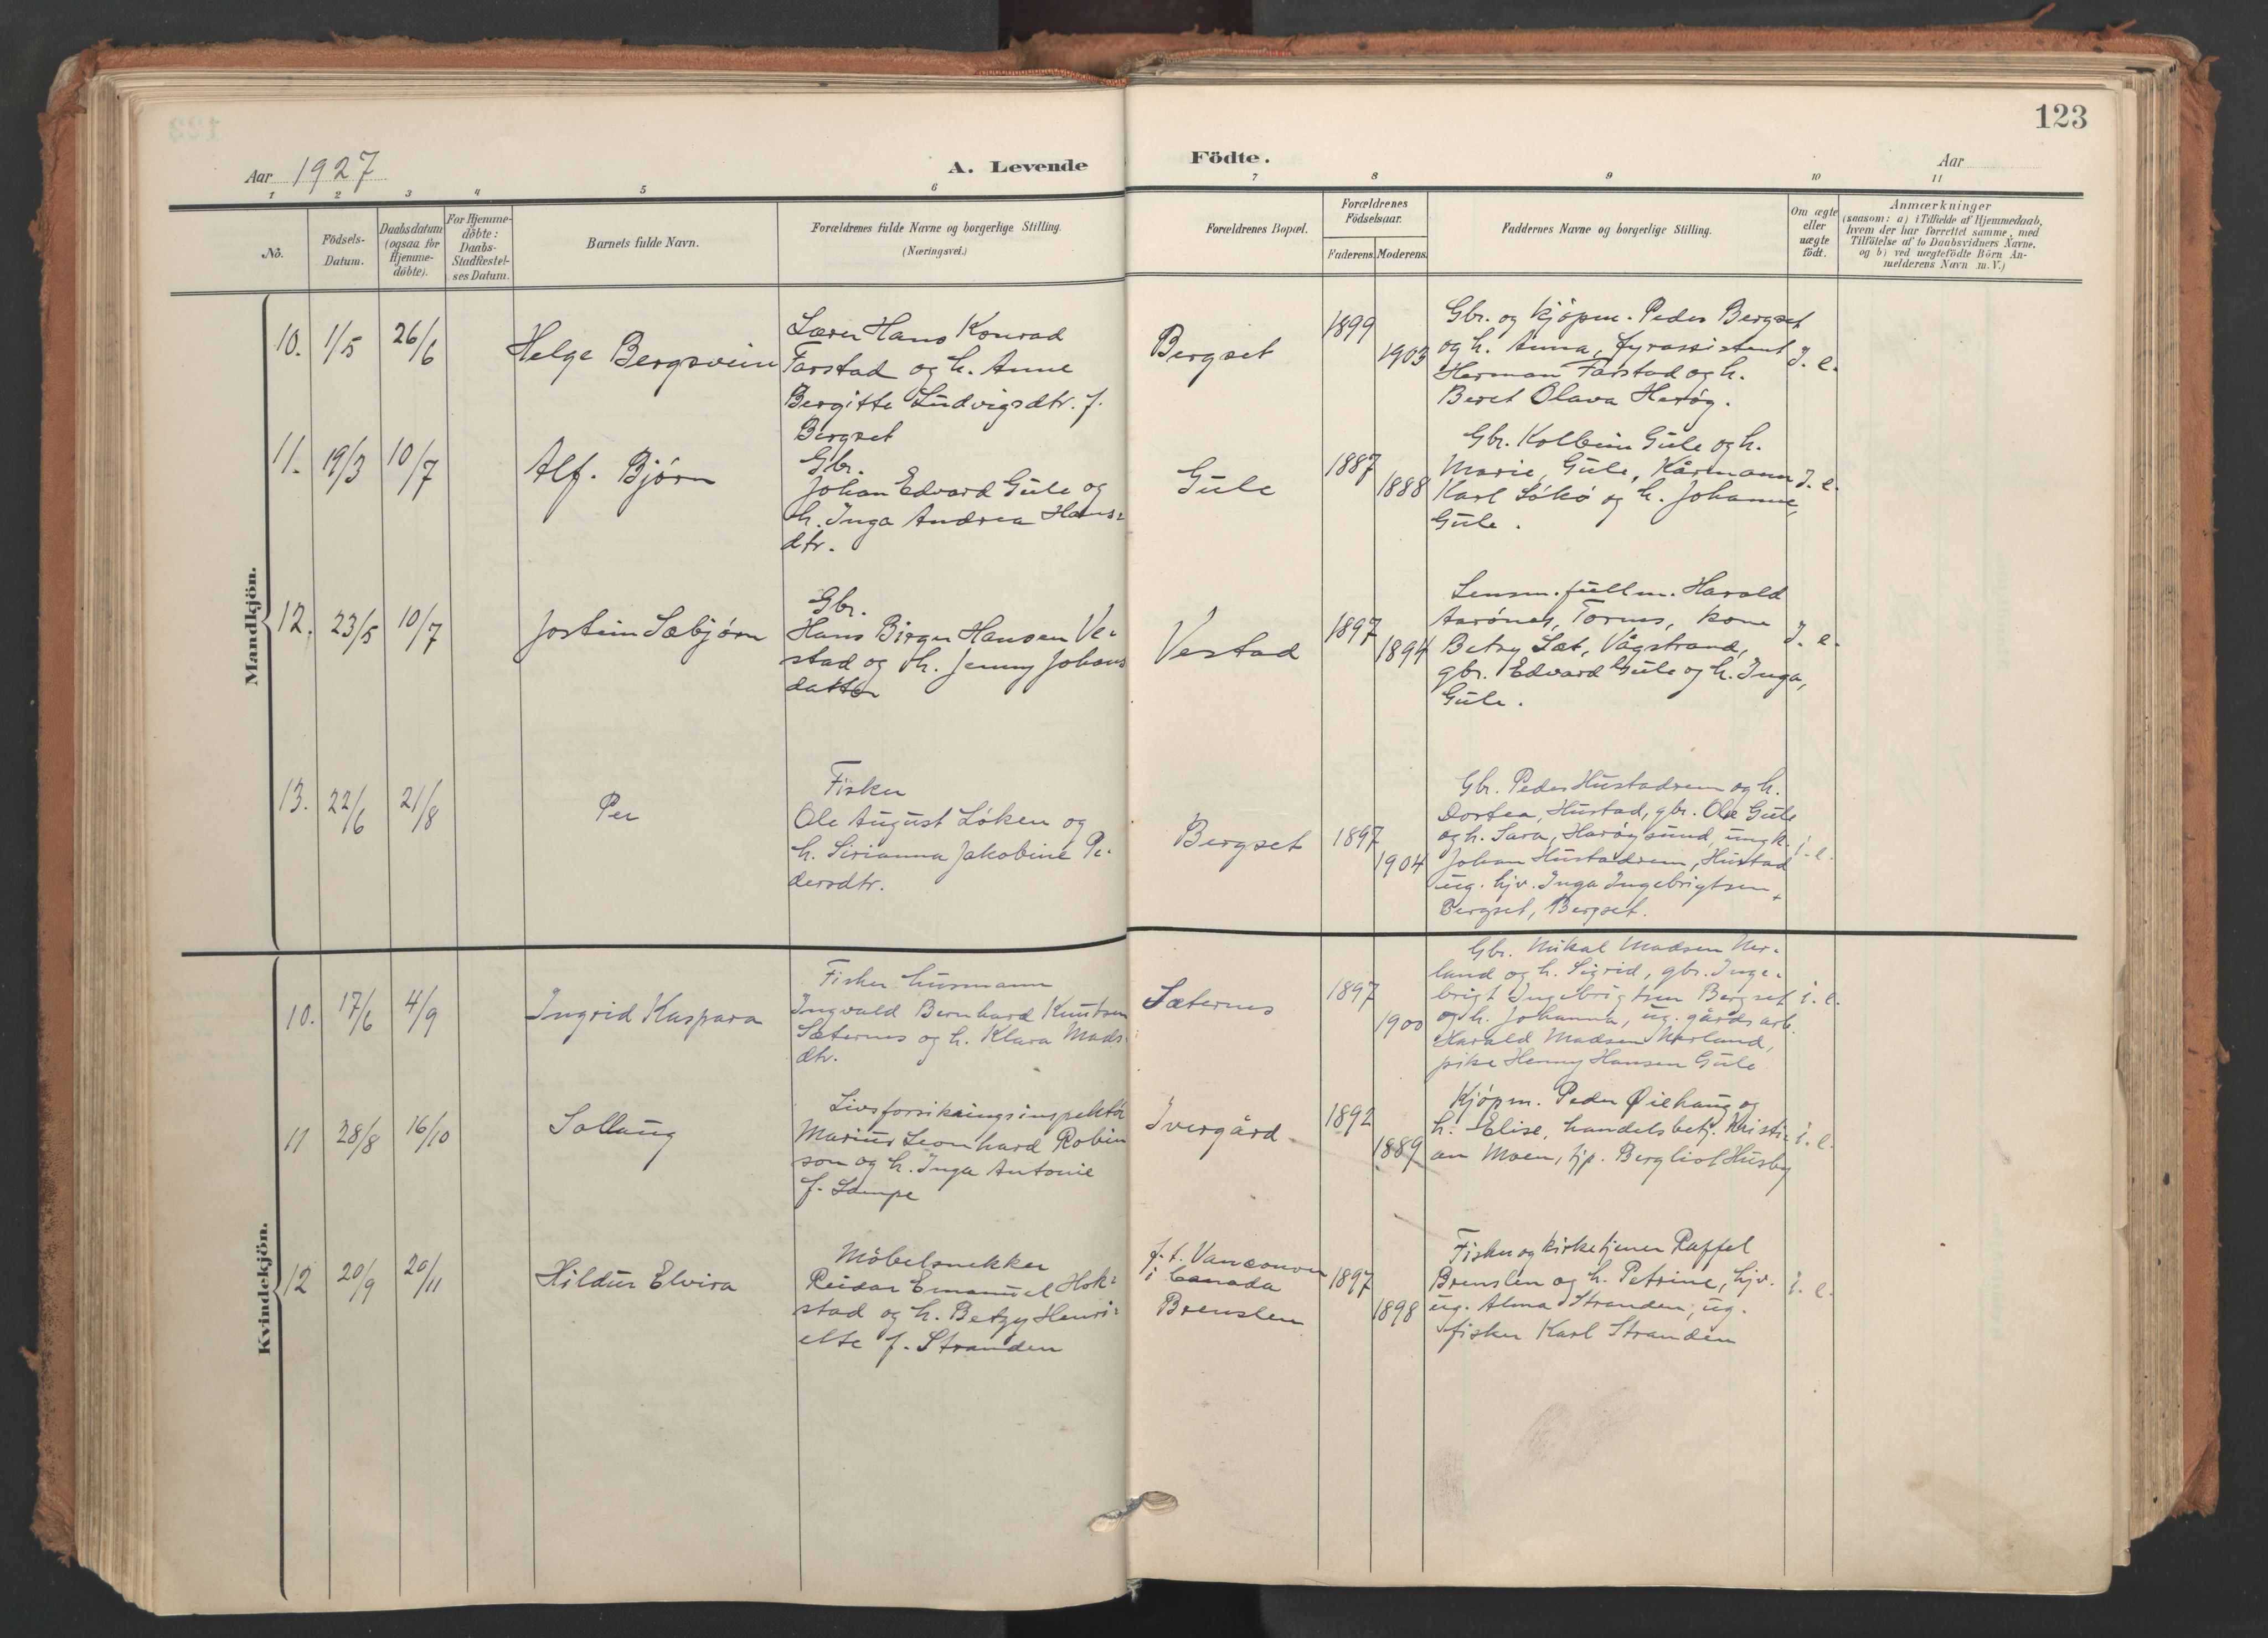 123
Aar 1927
A. Levende
Födte.
Aar
1 2 3 4 5 6 7 8 9 10 11
No.
Födsels-
Datum.
Daabsdatum
(ogsaa for
Hjemme-
döbte).
For Hjemme-
döbte:
Daabs-
Stadfæstel-
ses Datum.
Barnets fulde Navn.
Forældrenes fulde Navne og borgerlige Stilling.
(Næringsvei.)
Forældrenes Bopæl.
Forældrenes
Födselsaar.
Faderens.
Moderens.
Faddernes Navne og borgerlige Stilling.
Om ægte
eller
uægte
født.
Anmærkninger
(saasom: a) i Tilfælde af Hjemmedaab,
hvem der har forrettet samme, med
Tilföielse af to Daabsvidners Navne.
og b) ved uægtefödte Börn An-
melderens Navn m. V.)
Mandkjön.
10. 1/5 26/6
Helge Bergsvein
Lærer Hans Konrad
Farstad og h. Anne
Bergitte Ludvigsdtr. f.
Bergset
Bergset
1899
1903
Gbr. og kjöpm. Peder Bergset
og h. Anna, fyrassistent
Herman Farstad og h.
Beret Olava Herög.
I. e.
11. 19/3 10/7
Alf. Bjórn
Gbr.
Johan Edvard Gule og
h. Inga Andrea Hans-
dtr.
Gule
1887
1888
Gbr. Kolbein Gule og h.
Marie, Gule, Kårmann
Karl Sökö og h. Johanne,
Gule.
I. e.
12. 23/5 10/7
Jostein Sæbjørn
Gbr.
Hans Birger Hansen Ve-
stad og h. Jenny Johans
datter
Vestad
1897
1894
Lensm. fullm. Harald
Aarönes, Tornes, kone
Betzy Sæt, Vågstrand,
gbr. Edvard Gule og h. Inga,
Gule.
I. e.
13. 22/6 21/8
Per
Fisker
Ole August Löken og
h. Sirianna Jakobine Pe-
dersdtr.
Bergset
1897
1904
Gbr. Peder Hustadrem og h.
Dortea, Hustad, gbr. Ole Gule
og h. Sara, Haröysund, ungk.
Johan Hustadrem, Hustad
ug. hjv. Inga Ingebrigtsen
Bergset, Bergset.
i. e.
Kvindekjön.
10. 17/6 4/9
Ingrid Kaspara
Fisker husmann
Ingvald Bernhard Knutsen
Sæternes og h. Klara Mads-
dtr.
Sæternes
1897
1900
Gbr. Mikal Madsen Ner-
land og h. Sigrid, gbr. Inge-
brigt Ingebrigtsen Bergset
og h. Johanna, ug. gårdsarb.
Harald Madsen Nerland,
pike Henny Hansen Gule
i. e.
11 28/8 16/10
Sollaug
Livsforsikringsinspektör
Marius Leonhard Robin
son og h. Inga Antonie
f. Lampe
Ivergård
1892
1889
Kjöpm. Peder Øiehaug og
h. Elise, handelsbetj. Kristi-
an Moen, tjp. Bergliot Husby
i. e.
12 20/9 20/11
Hildur Elvira
Möbelsnekker
Reidar Emanuel Hok-
stad og h. Betzy Henri-
ette f. Stranden
f. t. Vancouver
i Canada
Brenslen
1897
1898
Fisker og kirketjener Raffel
Brenslen og h. Petrine, hjv.
ug. Alma Stranden, ug.
fisker Karl Stranden
i. e.